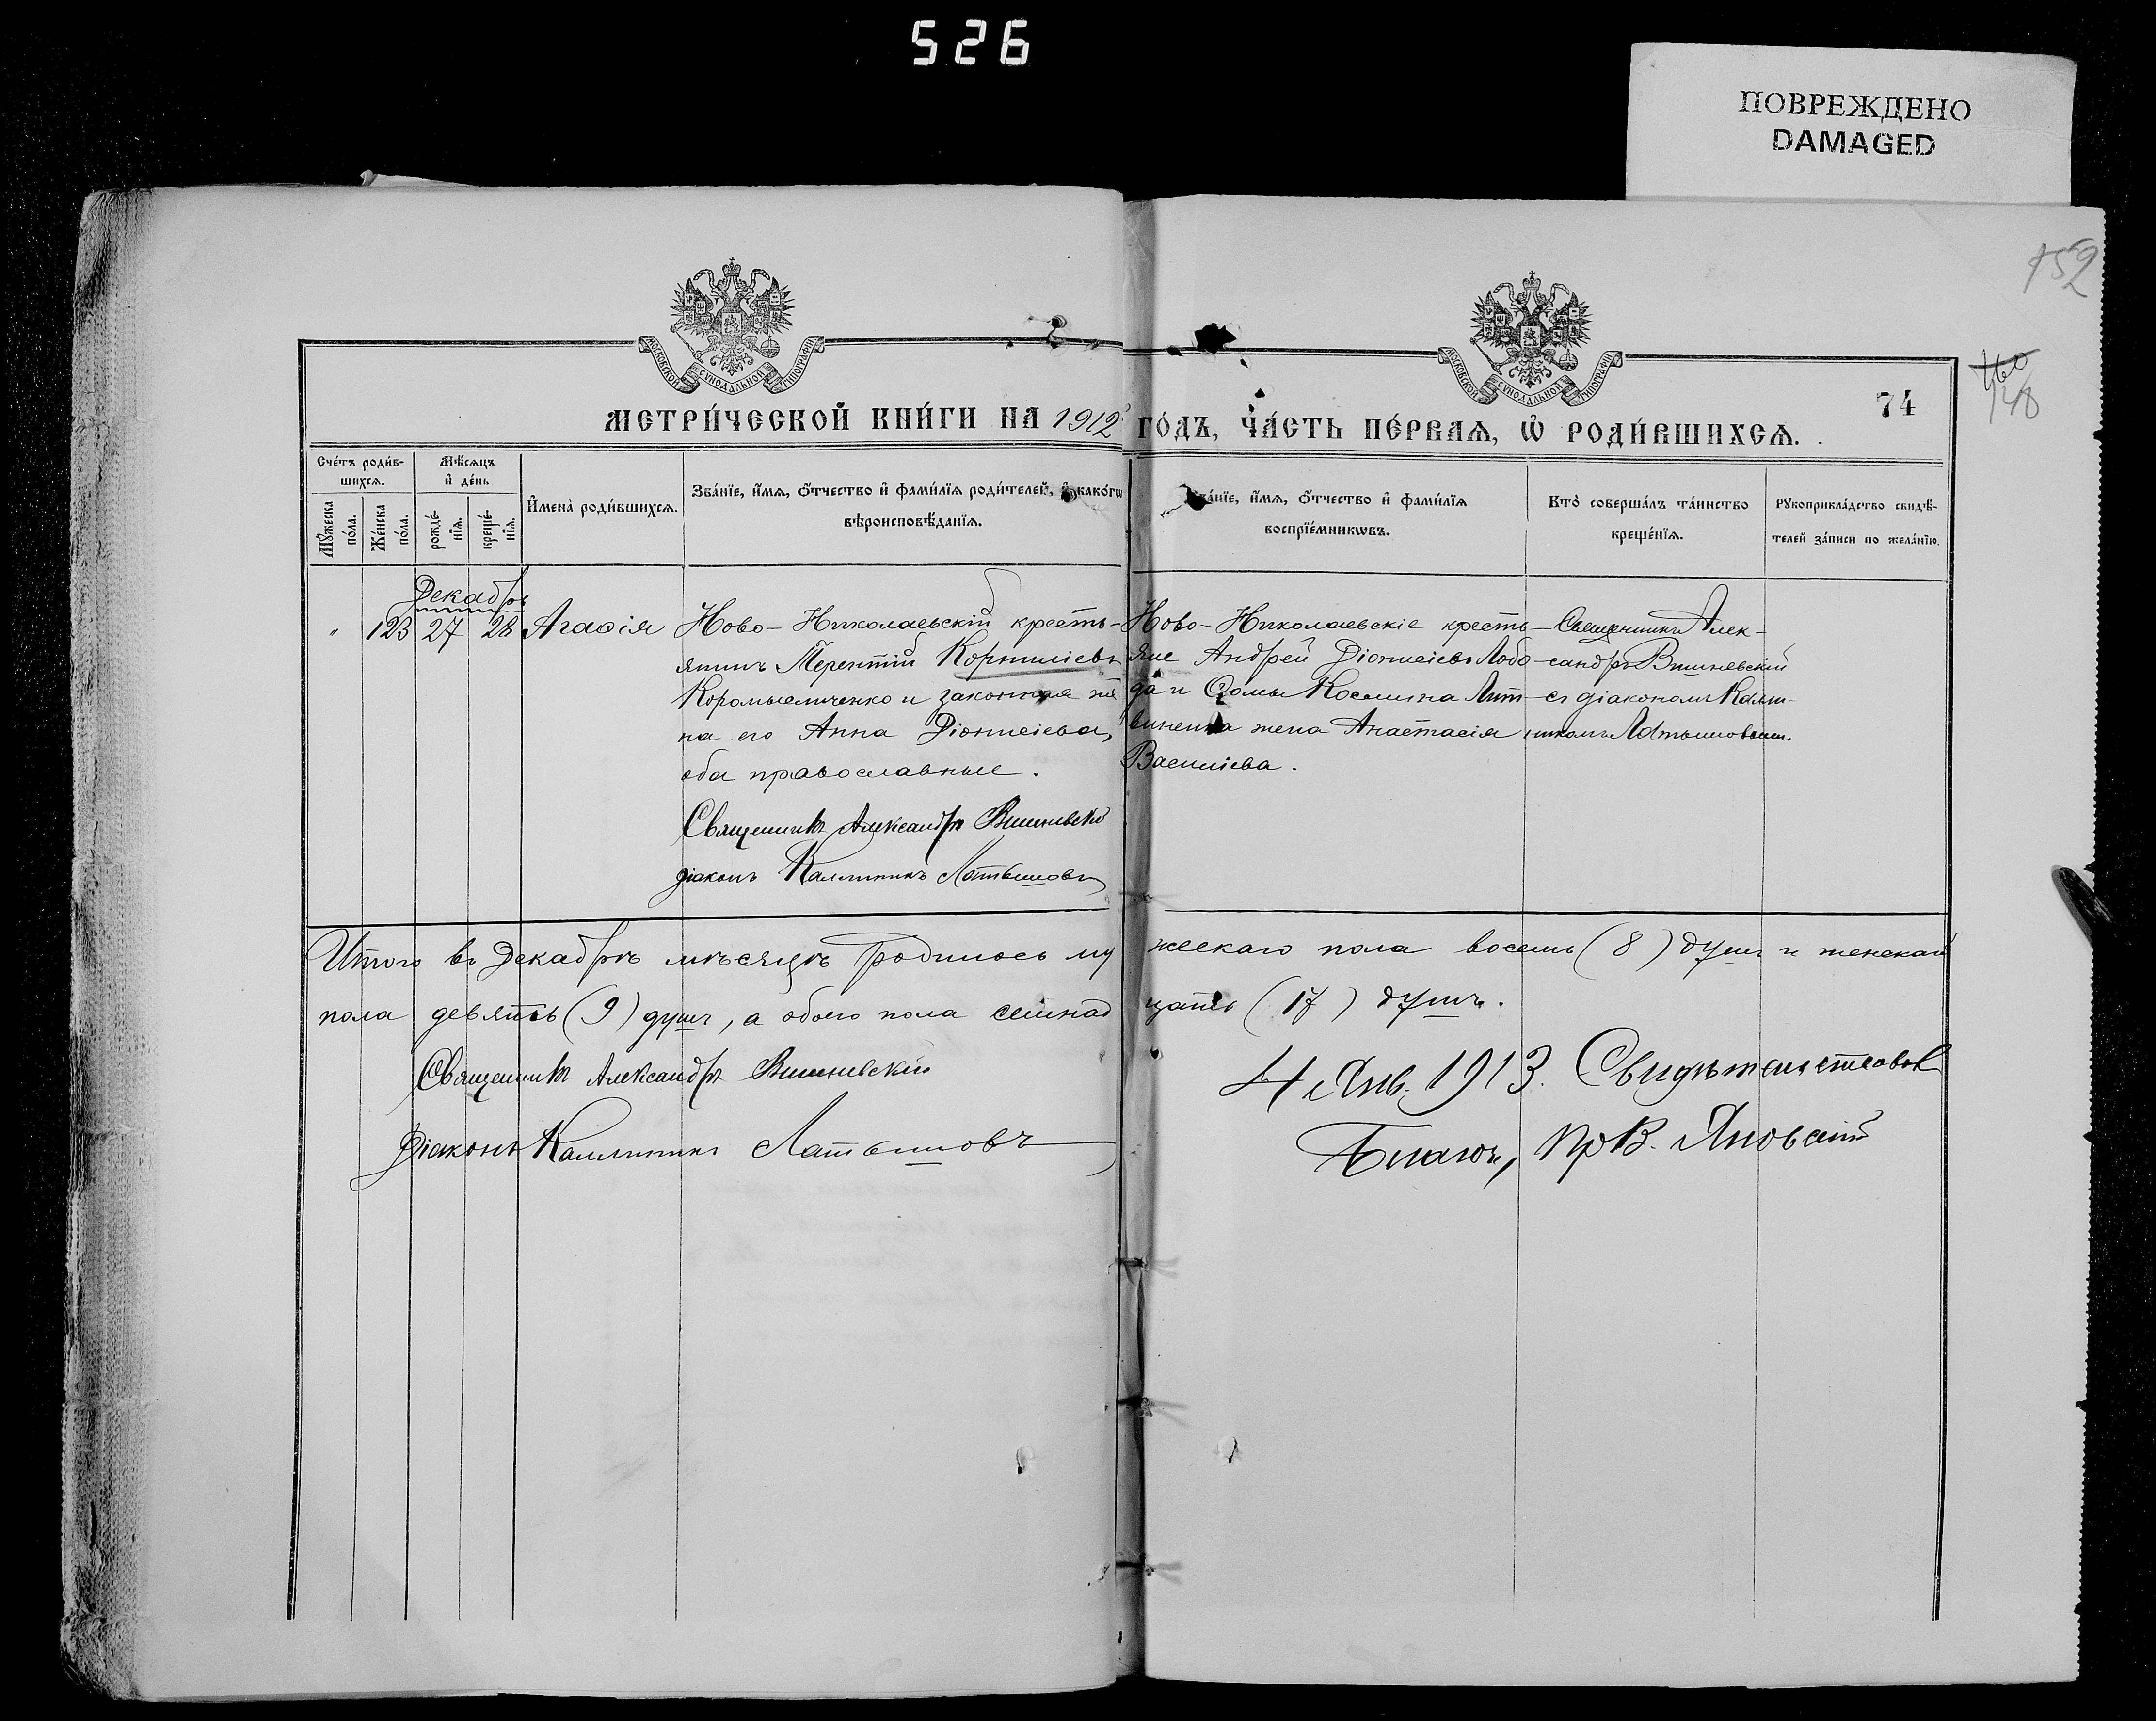 526
ПОВРЕЖДЕНО
DAMAGED
152
160
148
МОСКОВСКОЙ СѴНОДАЛЬНОЙ ТИПОГРАФІИ
МОСКОВСКОЙ СѴНОДАЛЬНОЙ ТИПОГРАФІИ
74
МЕТРИ́ЧЕСКОЙ КНИ́ГИ НА 1912 ГО́ДЪ, ЧА́СТЬ ПЕ́РВАЯ, Ѡ РОДИ́ВШИХСЯ.
Сче́тъ роди́в-
шихся.
Мѣ́сяцъ
и де́нь
Му́жеска
по́ла.
Же́нска
по́ла.
рожде́-
нїя.
креще́-
нїя.
Имена̀ роди́вшихся.
Зва́нїе, и́мя, о́тчество и фами́лїя роди́телей, и како́гѡ
вѣроисповѣ́данїя.
Зва́нїе, и́мя, о́тчество и фами́лїя
воспрїе́мникѡвъ.
Кто̀ соверша́лъ та́инство
креще́нїя.
Рукоприкла́дство свидѣ́-
телей за́писи по жела́нїю.
Декабрь
" 123 27 28 Агаѳія
Ново-Николаевскій кресть-
янинъ Терентій Корнилiевъ
Коромысличенко и законная же
на его Анна Діонисіева,
оба православные.
Священникъ Александръ Вишневскій
діаконъ Каллиникъ Латышовъ
Ново-Николаевскіе кресть-
яне Андрей Діонисіевъ Лобо
да и Ѳомы Космина Лит-
виненка жена Анастасія
Василіева.
Священникъ Алек-
сандръ Вишневскій
съ діакономъ Калли-
никомъ Латышовымъ.
Итого въ Декабрѣ мѣсяцѣ родилось му жескаго пола восемь (8) душъ и женскаго
пола девять (9) душъ, а обоего пола семнад цать (17) душъ.
Священникъ Александръ Вишневскій
Діаконъ Каллиникъ Латышовъ
4 Янв. 1913. Свидѣтельствовалъ
Благоч., пр. В. Яновскій